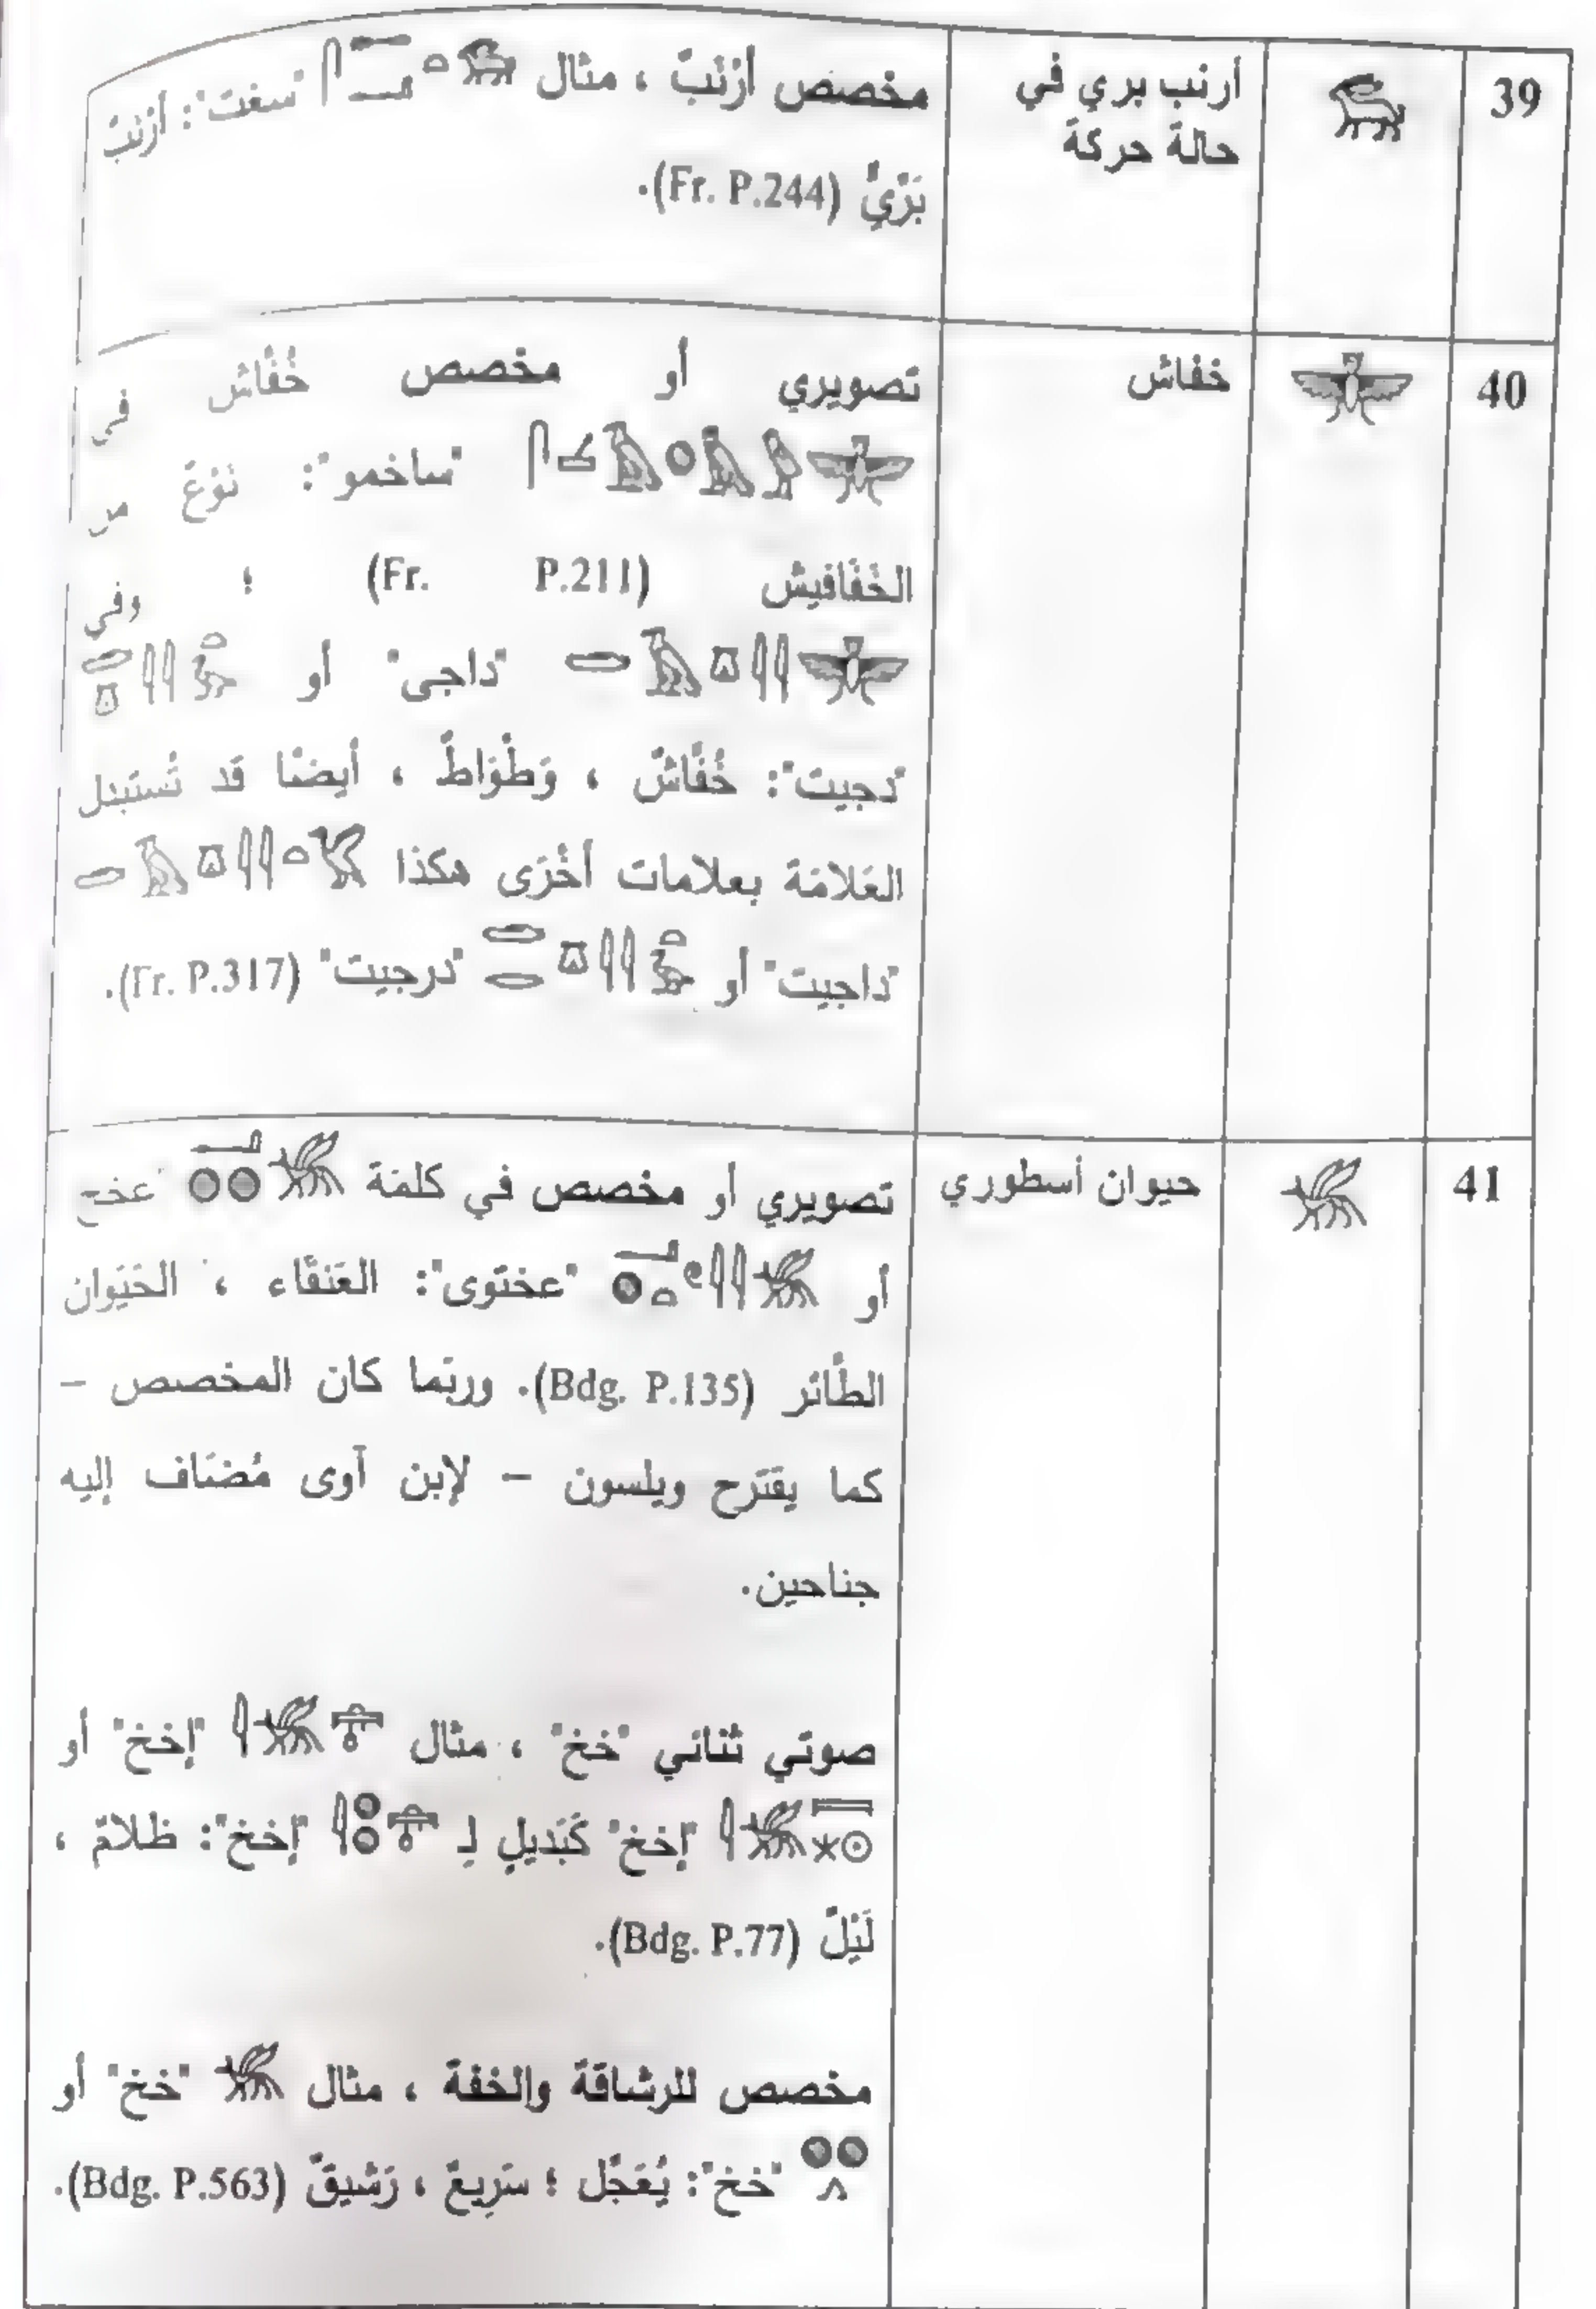 39
أرنب بري في
حالة حركة
مخصص أَرْنَبٌ ، مثال "سغت": أَرْنَبٌ
بَرِّيٌّ (Fr. P.244).
40
خفاش
تصويري أو مخصص خُفَّاش في
"ساخمو": نَوْعٌ من
الخَفَافيش (Fr. P.211) ؛ وفي
"داجى" أو
"دجيت": خُفَّاشٌ ، وَطْوَاطٌ ، أيضًا قد تُستَبدل
العَلامَة بعلامات أُخْرَى هكذا
"داجيت" أو "درجيت" (Fr. P.317).
41
حيوان أسطوري
تصويري أو مخصص في كلمَة "عخخ"
أو "عختوى": العَنقَاء ، الحَيَوان
الطَّائر (Bdg. P.135). وربَما كان المخصص –
كما يقتَرح ويلسون – لإبن آوى مُضَاف إليه
جناحين.
صوتي ثنائي "خخ" ، مثال "إخخ" أو
"إخخ" كَبَديلٍ لِـ "إخخ": ظلامٌ ،
لَيْلٌ (Bdg. P.77).
مخصص للرشاقة والخفة ، مثال "خخ" أو
"خخ": يُعَجِّل ؛ سَرِيعٌ ، رَشيقٌ (Bdg. P.563).